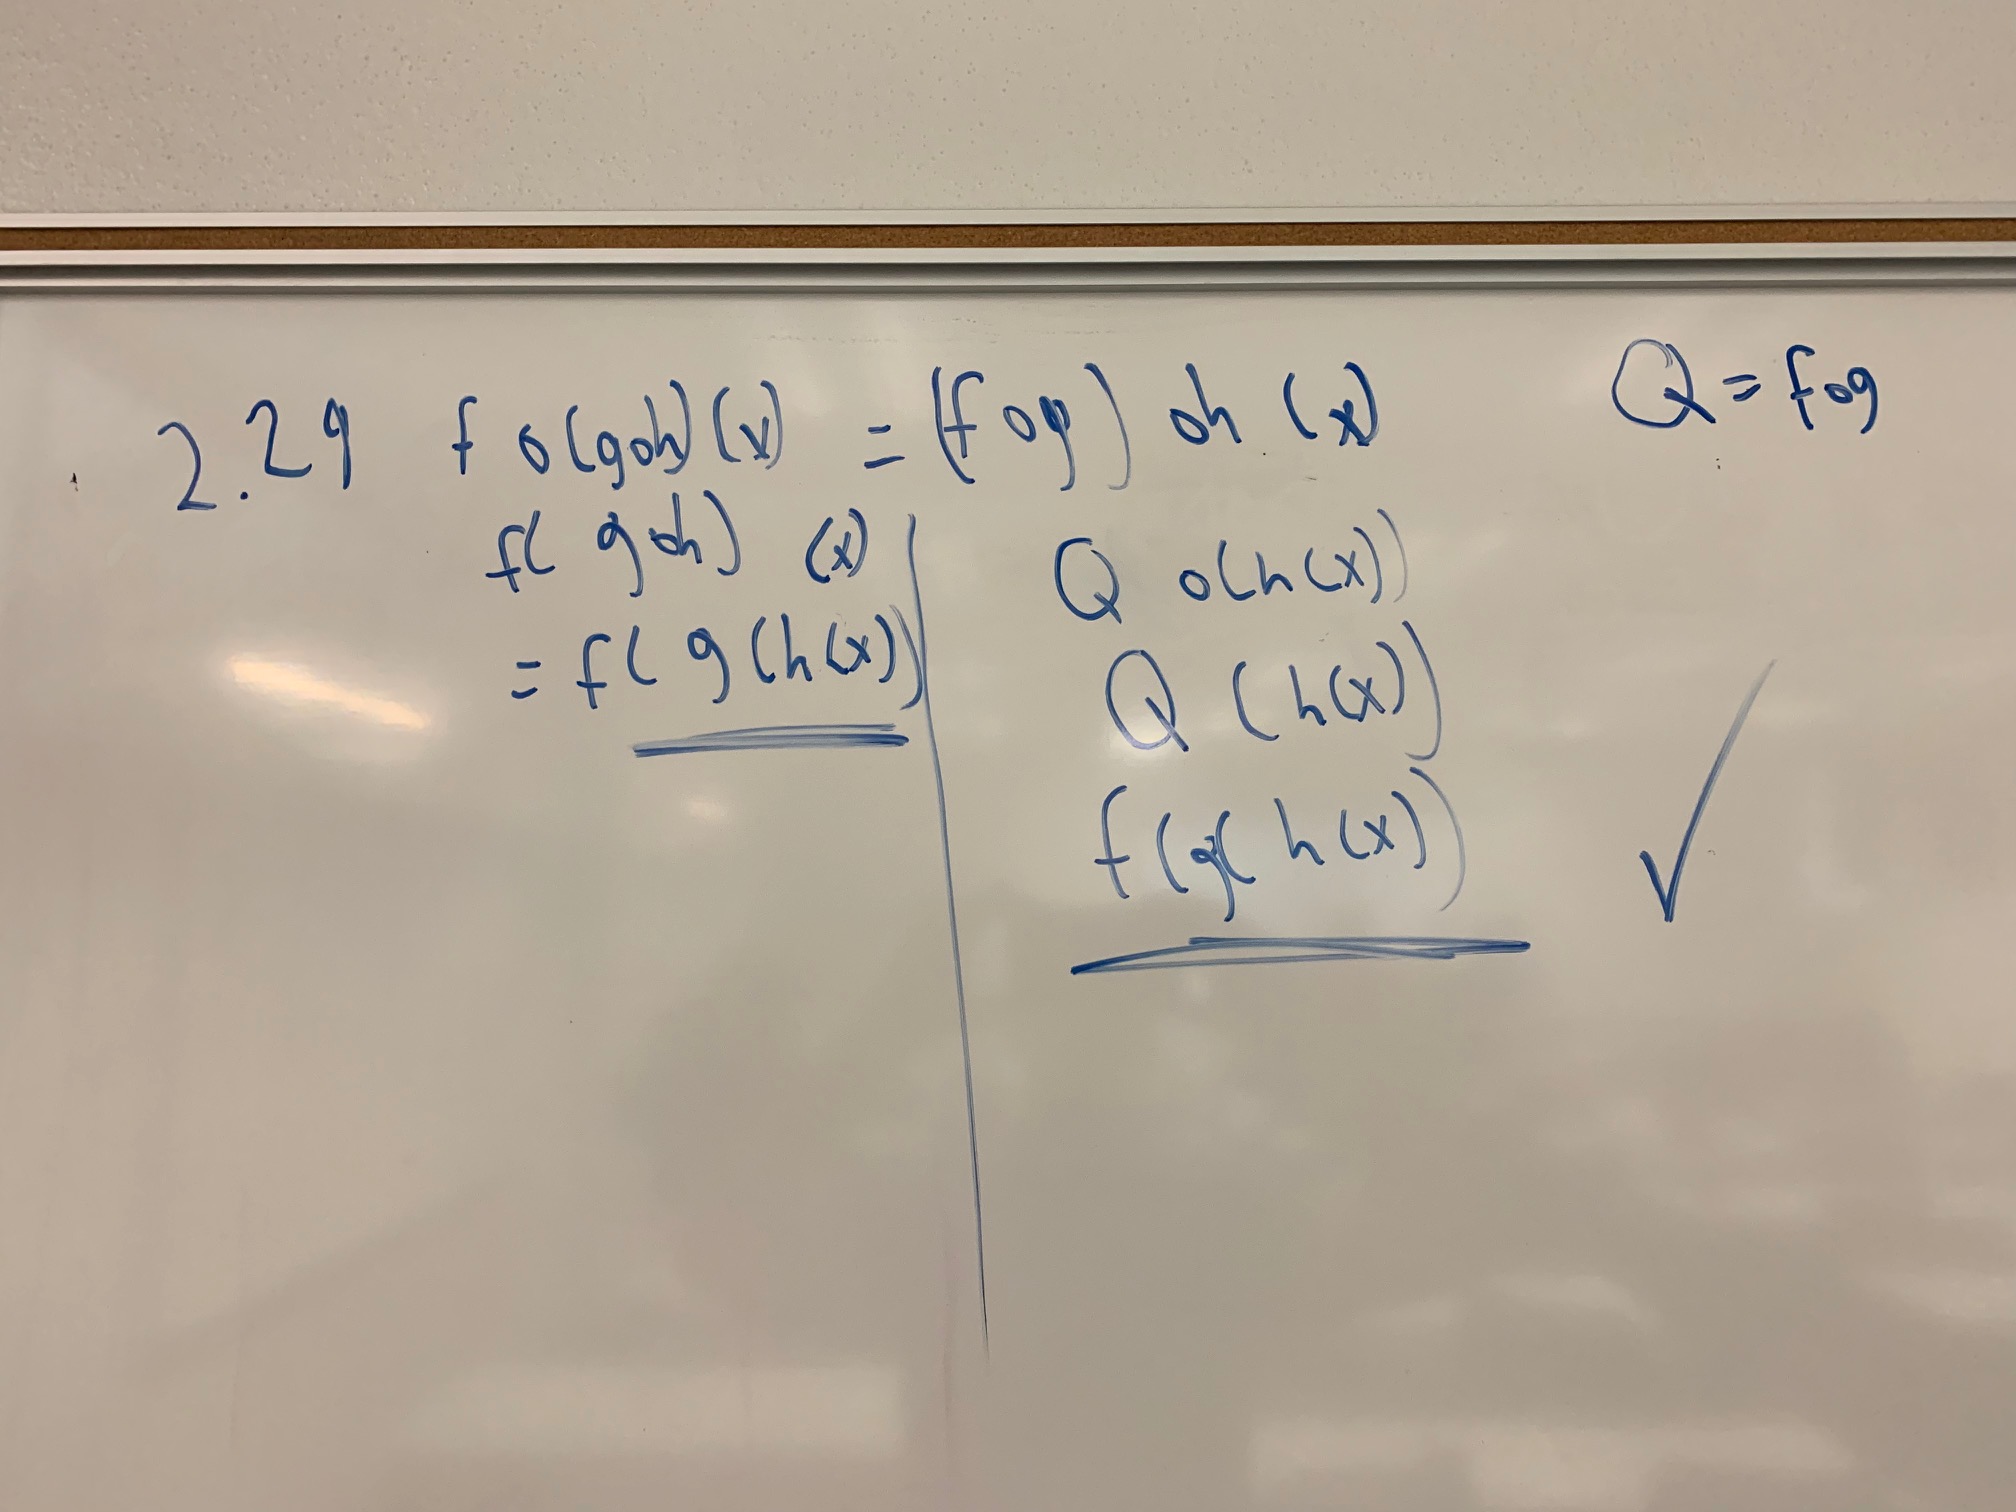 2.29 f o(goh)(x) = (fog) oh (x)
Q = fog
f( goh) (x)
= f( g(h(x))
Q o(h(x))
Q (h(x))
f(g( h(x))
✓